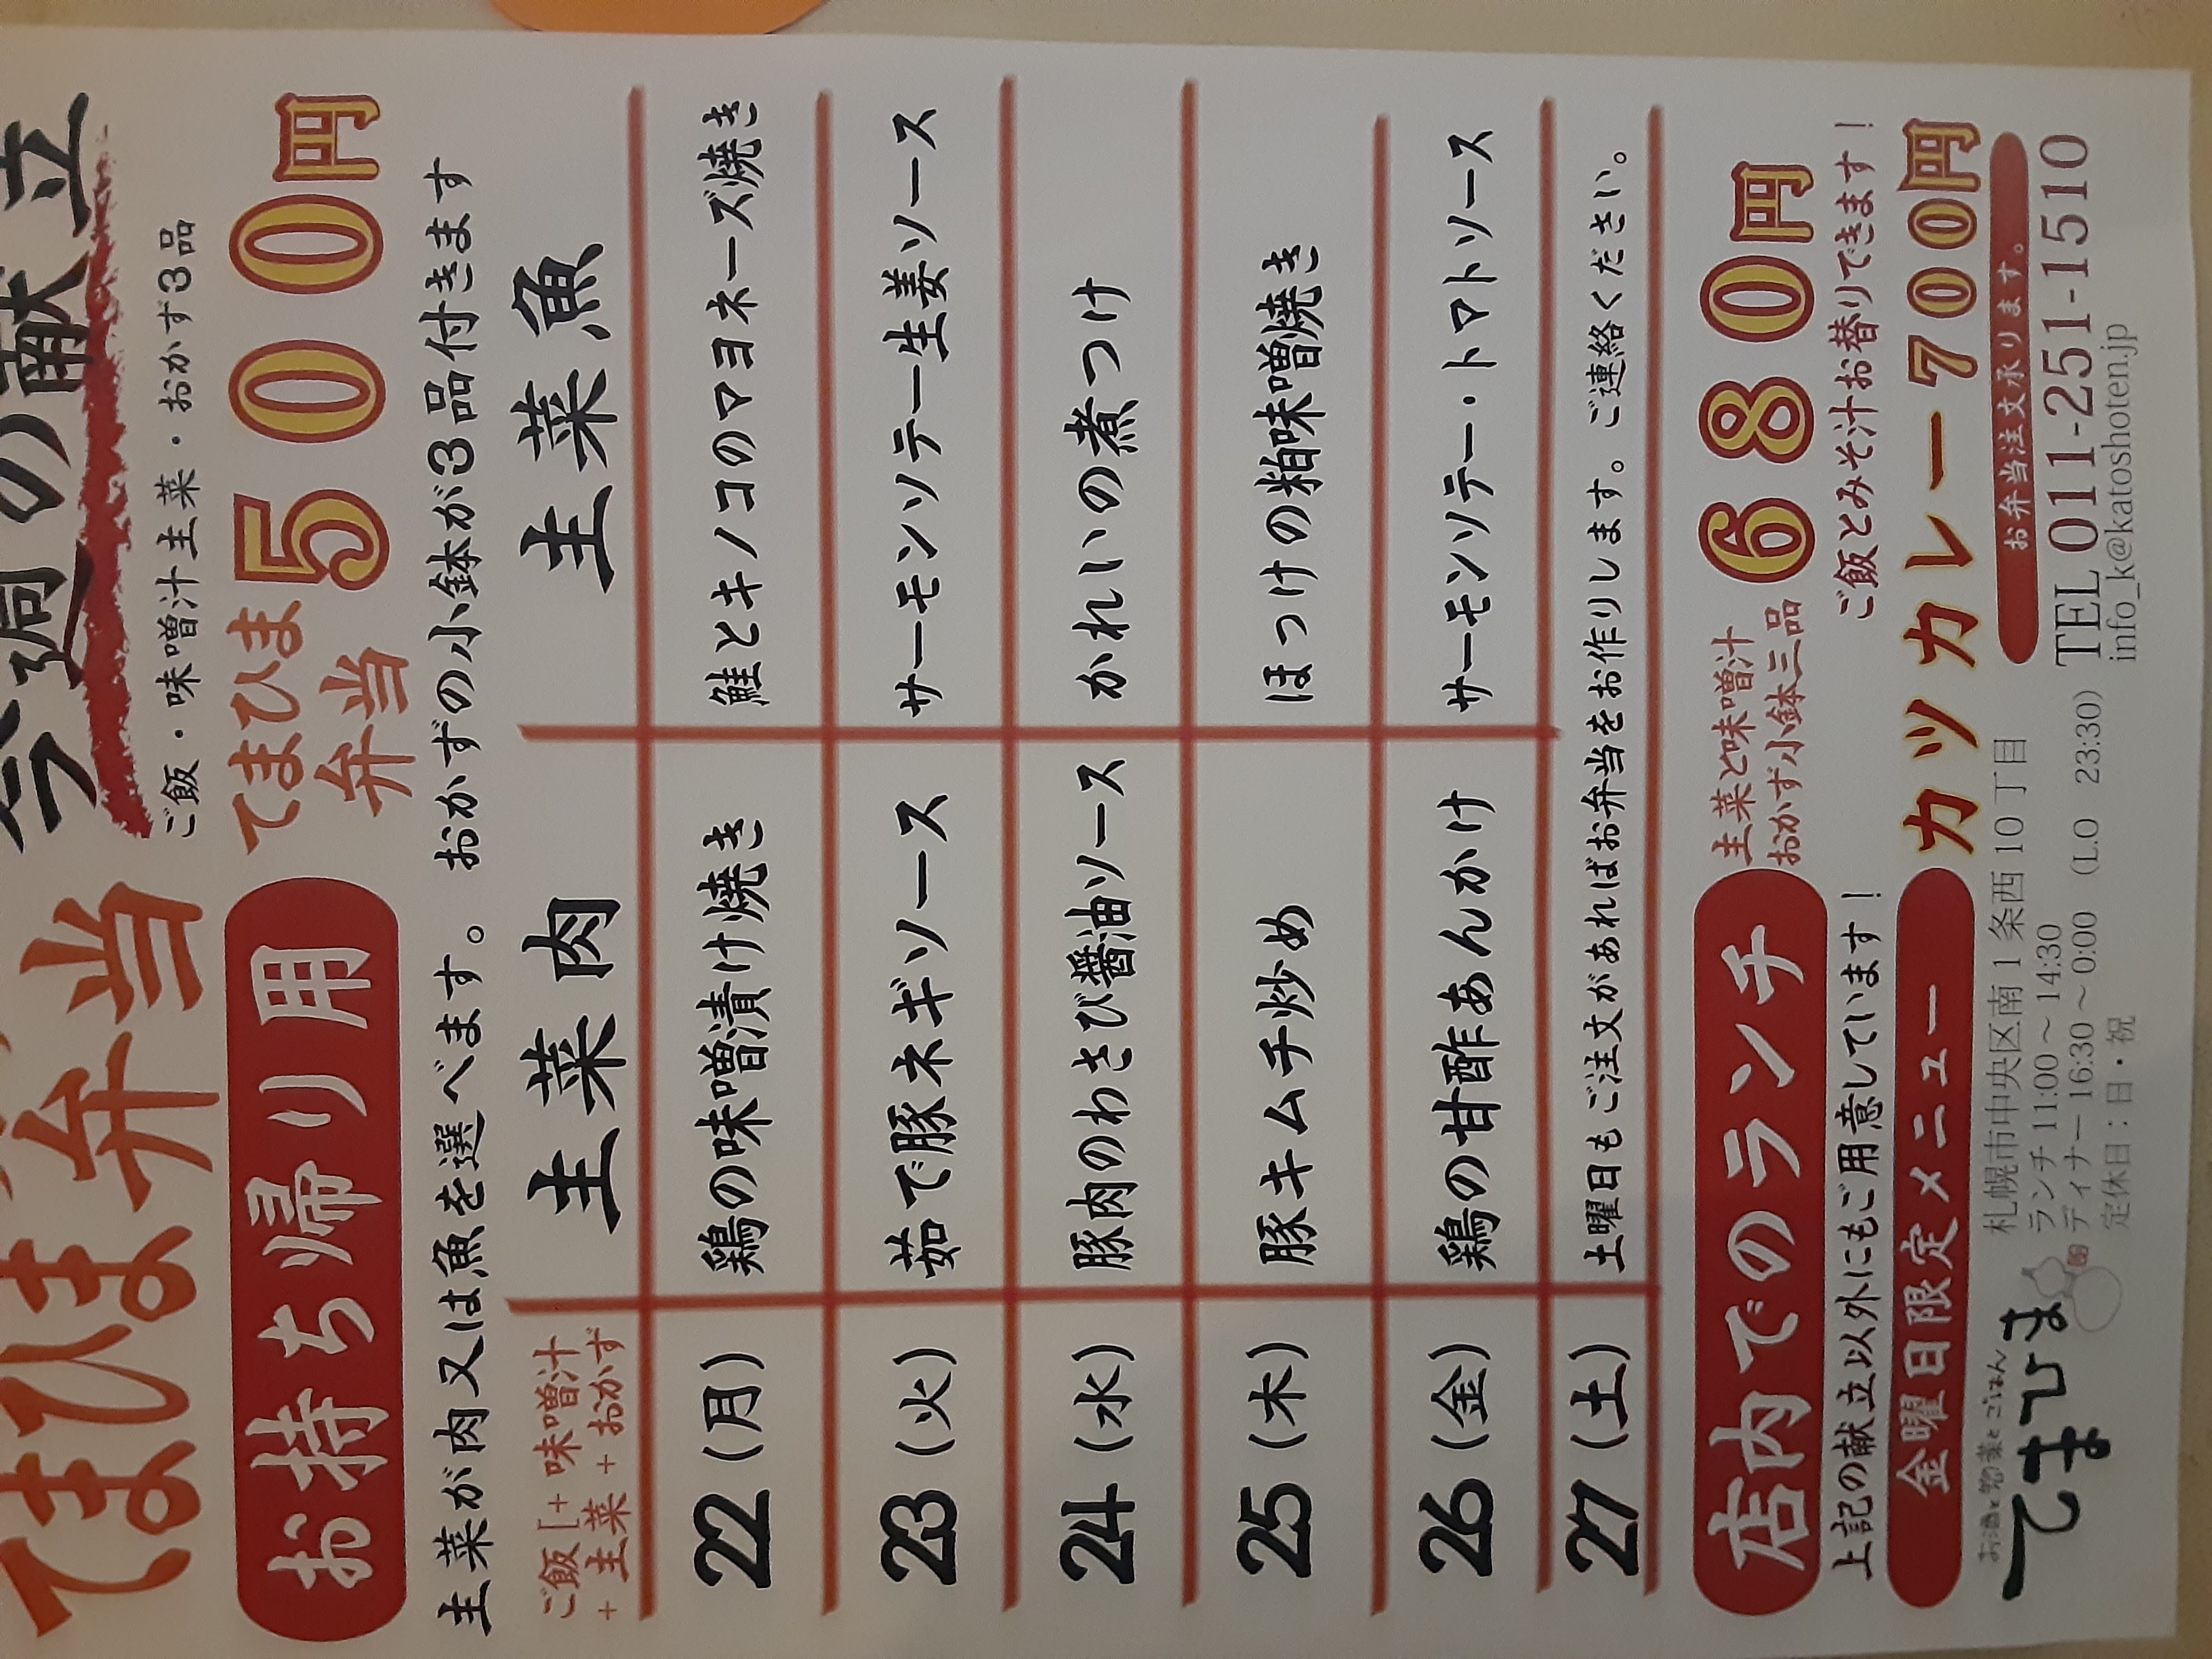 てまひま弁当 今週の献立
ご飯・味噌汁主菜・おかず3品
お持ち帰り用 てまひま弁当 500円
主菜が肉又は魚を選べます。 おかずの小鉢が3品付きます
ご飯[+味噌汁 主菜肉 主菜魚
+主菜+おかず
22(月) 鶏の味噌漬け焼き 鮭とキノコのマヨネーズ焼き
23(火) 茹で豚ネギソース サーモンソテー生姜ソース
24(水) 豚肉のわさび醤油ソース かれいの煮つけ
25(木) 豚キムチ炒め ほっけの粕味噌焼き
26(金) 鶏の甘酢あんかけ サーモンソテー・トマトソース
27(土) 土曜日もご注文があればお弁当をお作りします。ご連絡ください。
店内でのランチ 主菜と味噌汁 おかず小鉢三品 680円
上記の献立以外にもご用意しています! ご飯とみそ汁お替りできます!
金曜日限定メニュー カツカレー700円
お酒と惣菜とごはん
てまひま
札幌市中央区南1条西10丁目
ランチ11:00~14:30
ディナー16:30~0:00 (L.O 23:30)
定休日:日・祝
お弁当注文承ります。
TEL 011-251-1510
info_k@katoshoten.jp